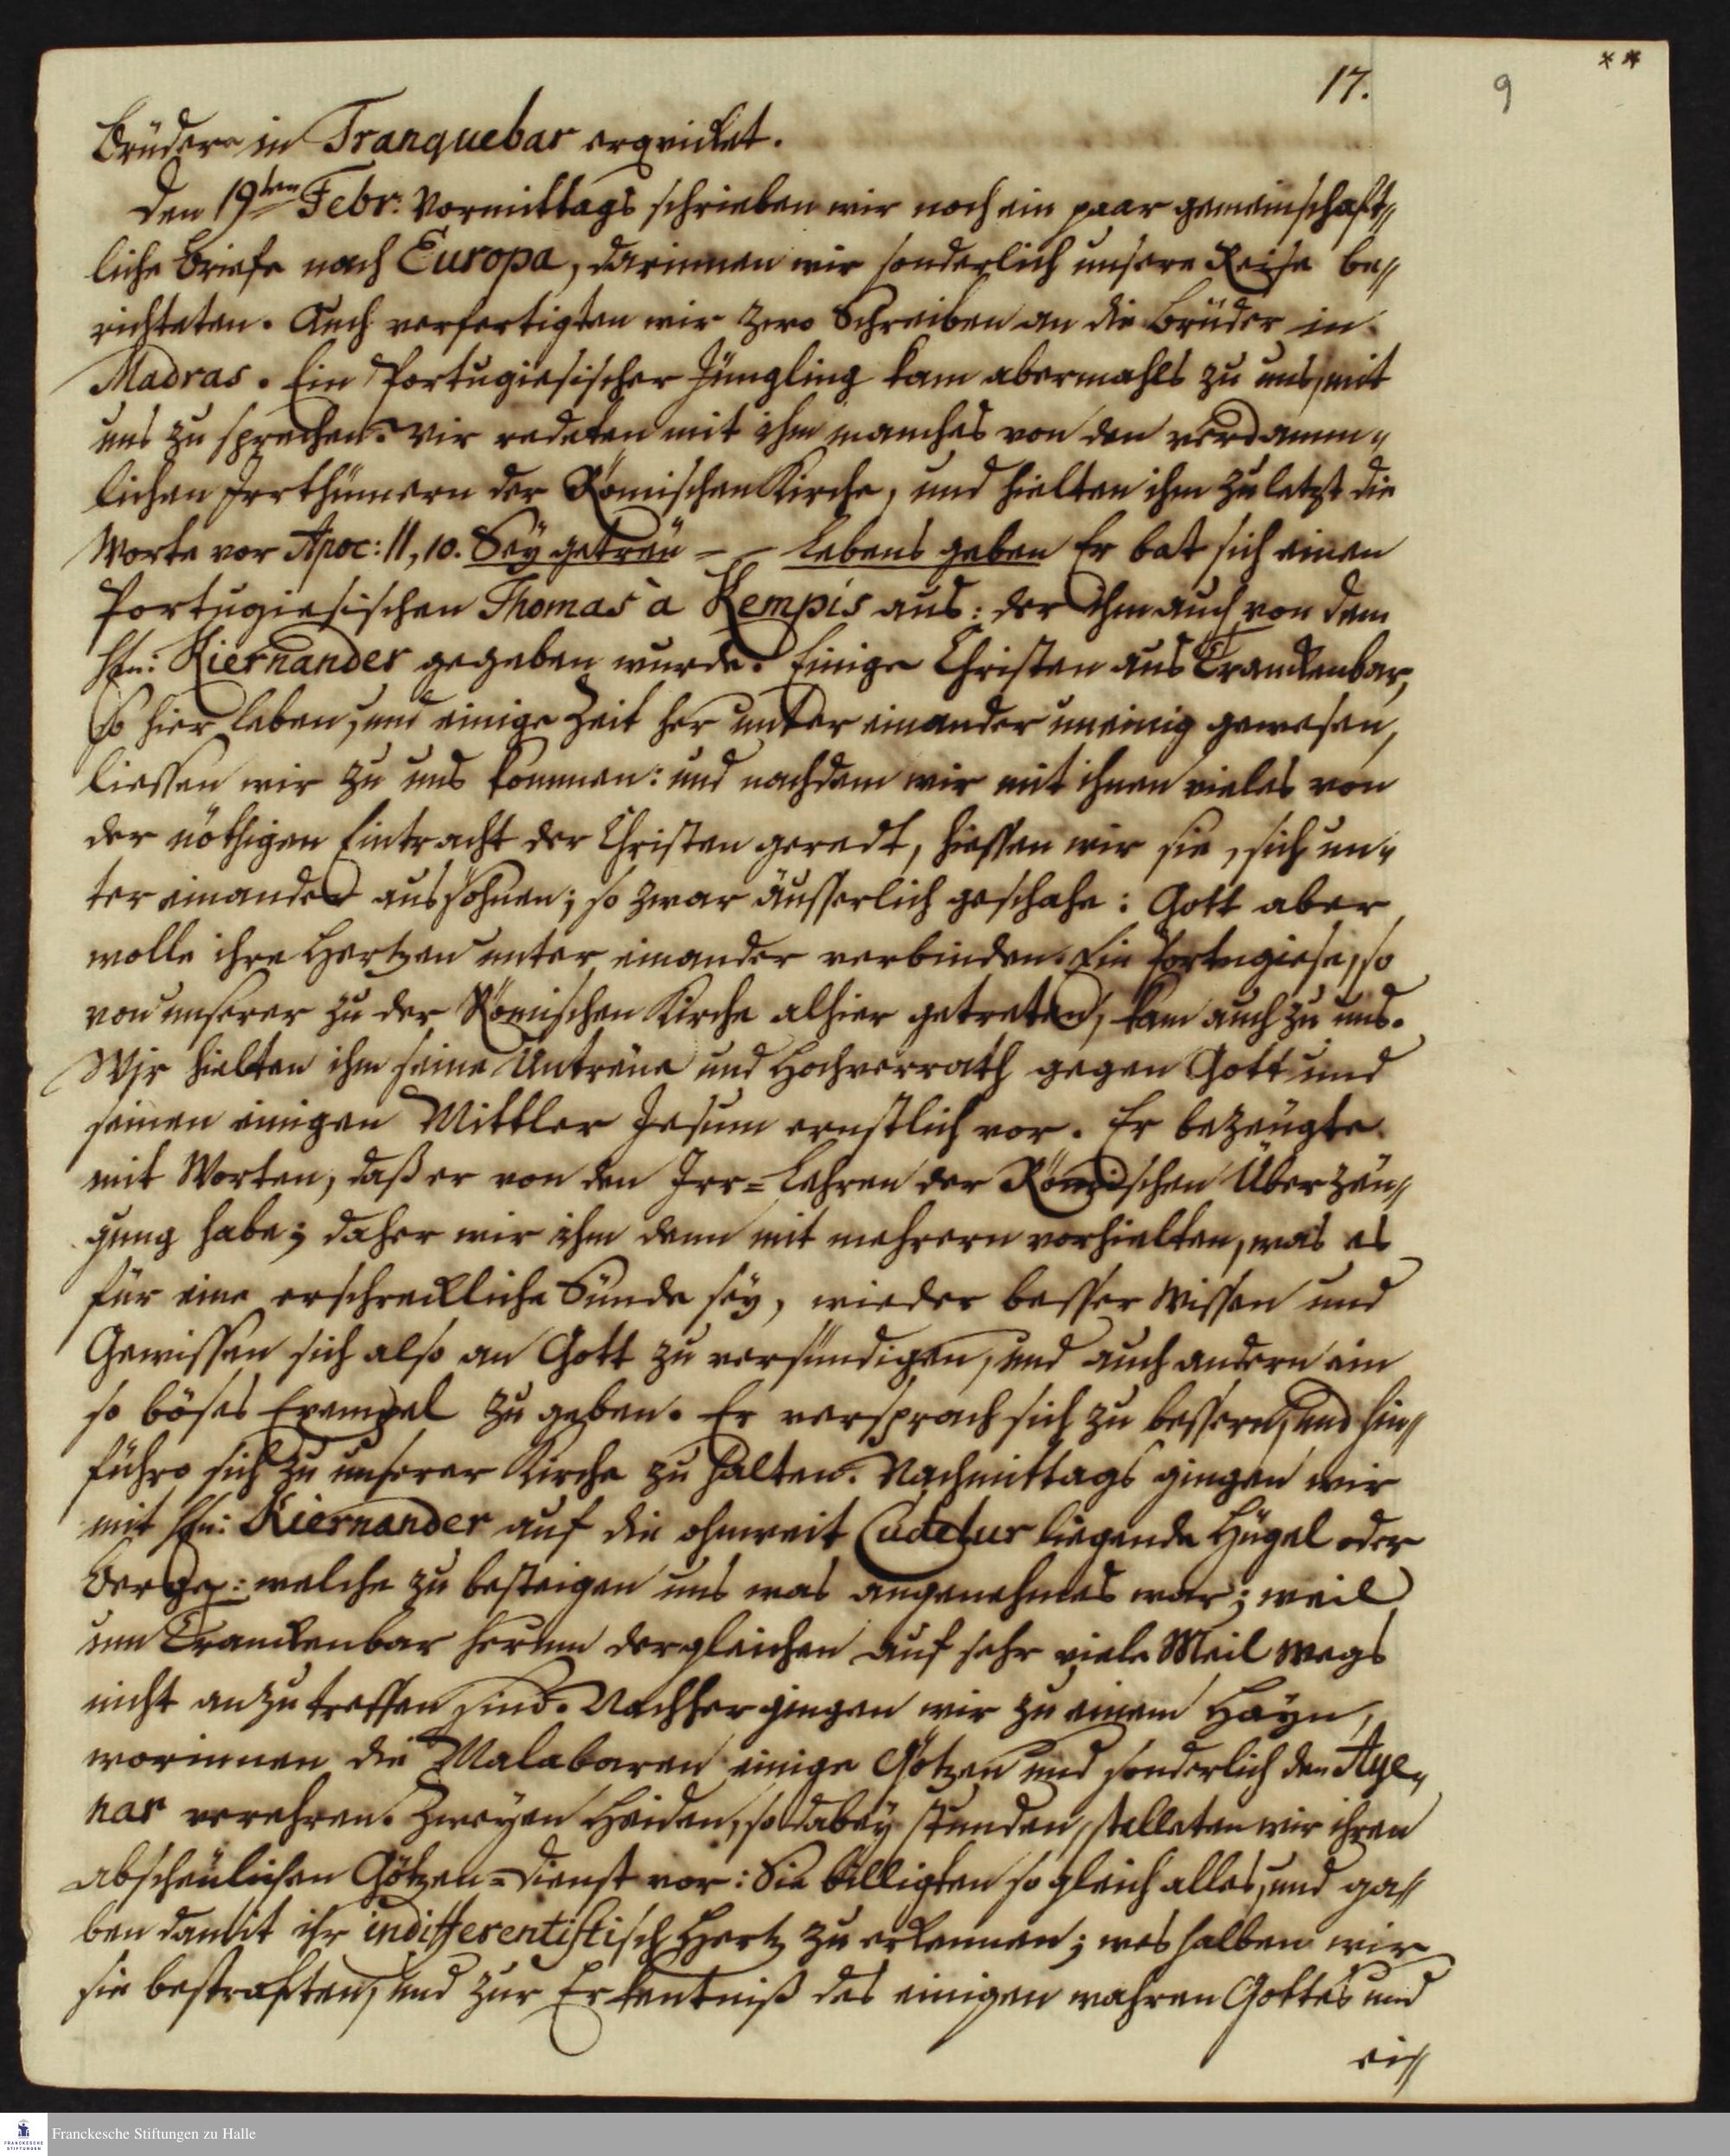 17.
9
**
Brüdern in Tranquebar erqvicket.
Den 19ten Febr: Vormittags schrieben wir noch ein paar gemeinschaft//
liche Briefe nach Europa, darinnen wir sonderlich unsere Reise be//
richteten. Auch verfertigten wir zwo Schreiben an die Brüder in
Madras. Ein Portugiesischer Jüngling kam abermahls zu uns, mit
uns zu sprechen. Wir redeten mit ihm manches von den verdamm„
lichen Irrthümern der Römischen Kirche, und hielten ihm zuletzt die
Worte vor Apoc: II, 10. Sey getreu — — Lebens geben Er bat sich einen
Portugiesischen Thomas à Kempis aus: der ihm auch von dem
Hfn: Kiernander gegeben wurde. Einige Christen aus Tranckenbar,
so hier leben, und einige Zeit her unter einander uneinig gewesen,
liessen wir zu uns kommen: und nachdem wir mit ihnen vieles von
der nöthigen Eintracht der Christen geredt, hiessen wir sie, sich un„
ter einander aussöhnen; so zwar äusserlich geschahe: Gott aber
wolle ihre Hertzen unter einander verbinden. Ein Portugiese, so
von unserer zu der Römischen Kirche alhier getreten, kam auch zu uns.
Wir hielten ihm seine Untreue und Hochverrath gegen Gott und
seinen einigen Mittler Jesum ernstlich vor. Er bezeugte
mit Worten, daß er von den Irr=Lehren der Römischen Überzeu//
gung habe; daher wir ihm denn mit mehrern vorhielten, was es
für eine erschreckliche Sünde sey, wieder besser Wissen und
Gewissen sich also an Gott zu versündigen, und auch andern ein
so böses Exempel zu geben. Er versprach sich zu bessern, und hin//
führo sich zu unserer Kirche zu halten. Nachmittags gingen wir
mit Hfn: Kiernander auf die ohnweit Cudelur liegende Hügel oder
Berge: welche zu besteigen uns was angenehmes war; weil
um Tranckenbar herum dergleichen auf sehr viele Meil Wegs
nicht anzutreffen sind. Nachher gingen wir zu einem Hayn,
worinnen die Malabaren einige Götzen und sonderlich den Aye„
nar verehren. Zweyen Heiden, so dabey stunden, stelleten wir ihren
abscheulichen Götzen=Dienst vor: Sie billigten so gleich alles, und ga//
ben damit ihr indifferentistisch Hertz zu erkennen; weshalben wir
sie bestraften, und zur Erkentniß des einigen wahren Gottes und
ei//
FRANCKESCHE STIFTUNGEN
Franckesche Stiftungen zu Halle